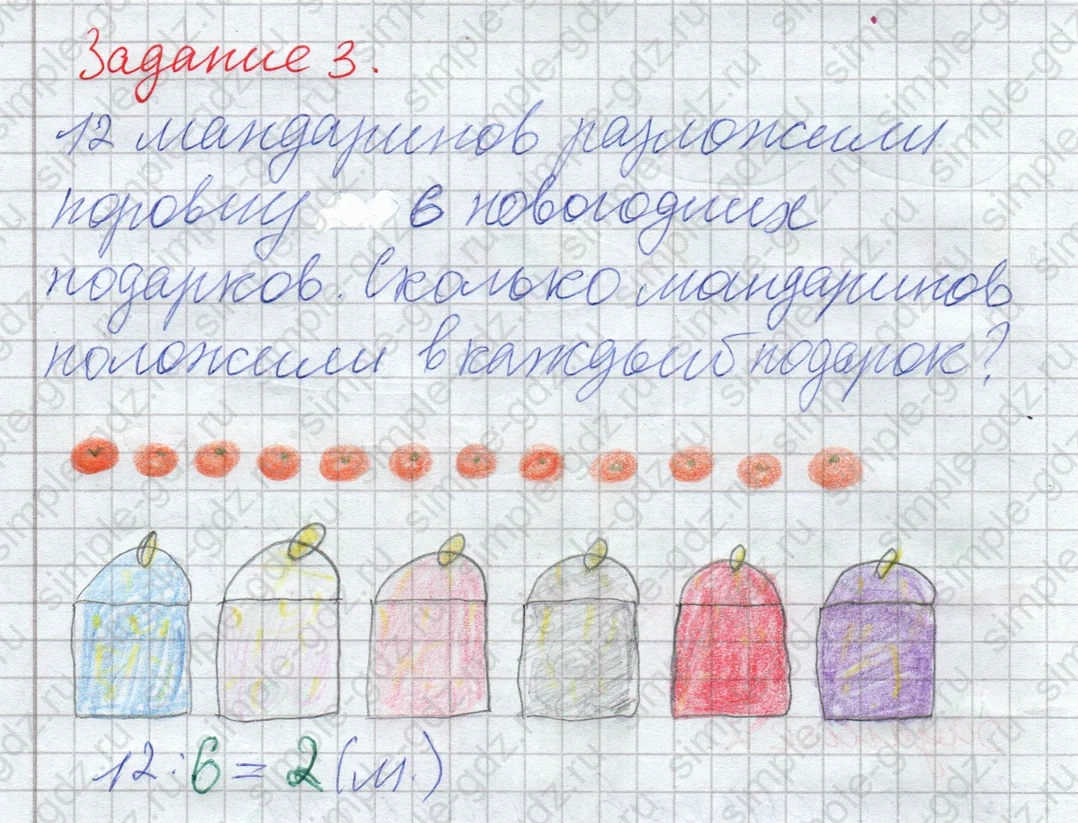 Задание 3.
12 мандаринов разложили
поровну 6 новогодних
подарков. Сколько мандаринов
положили в каждый подарок?
12:6=2(м.)
simple-gdz.ru